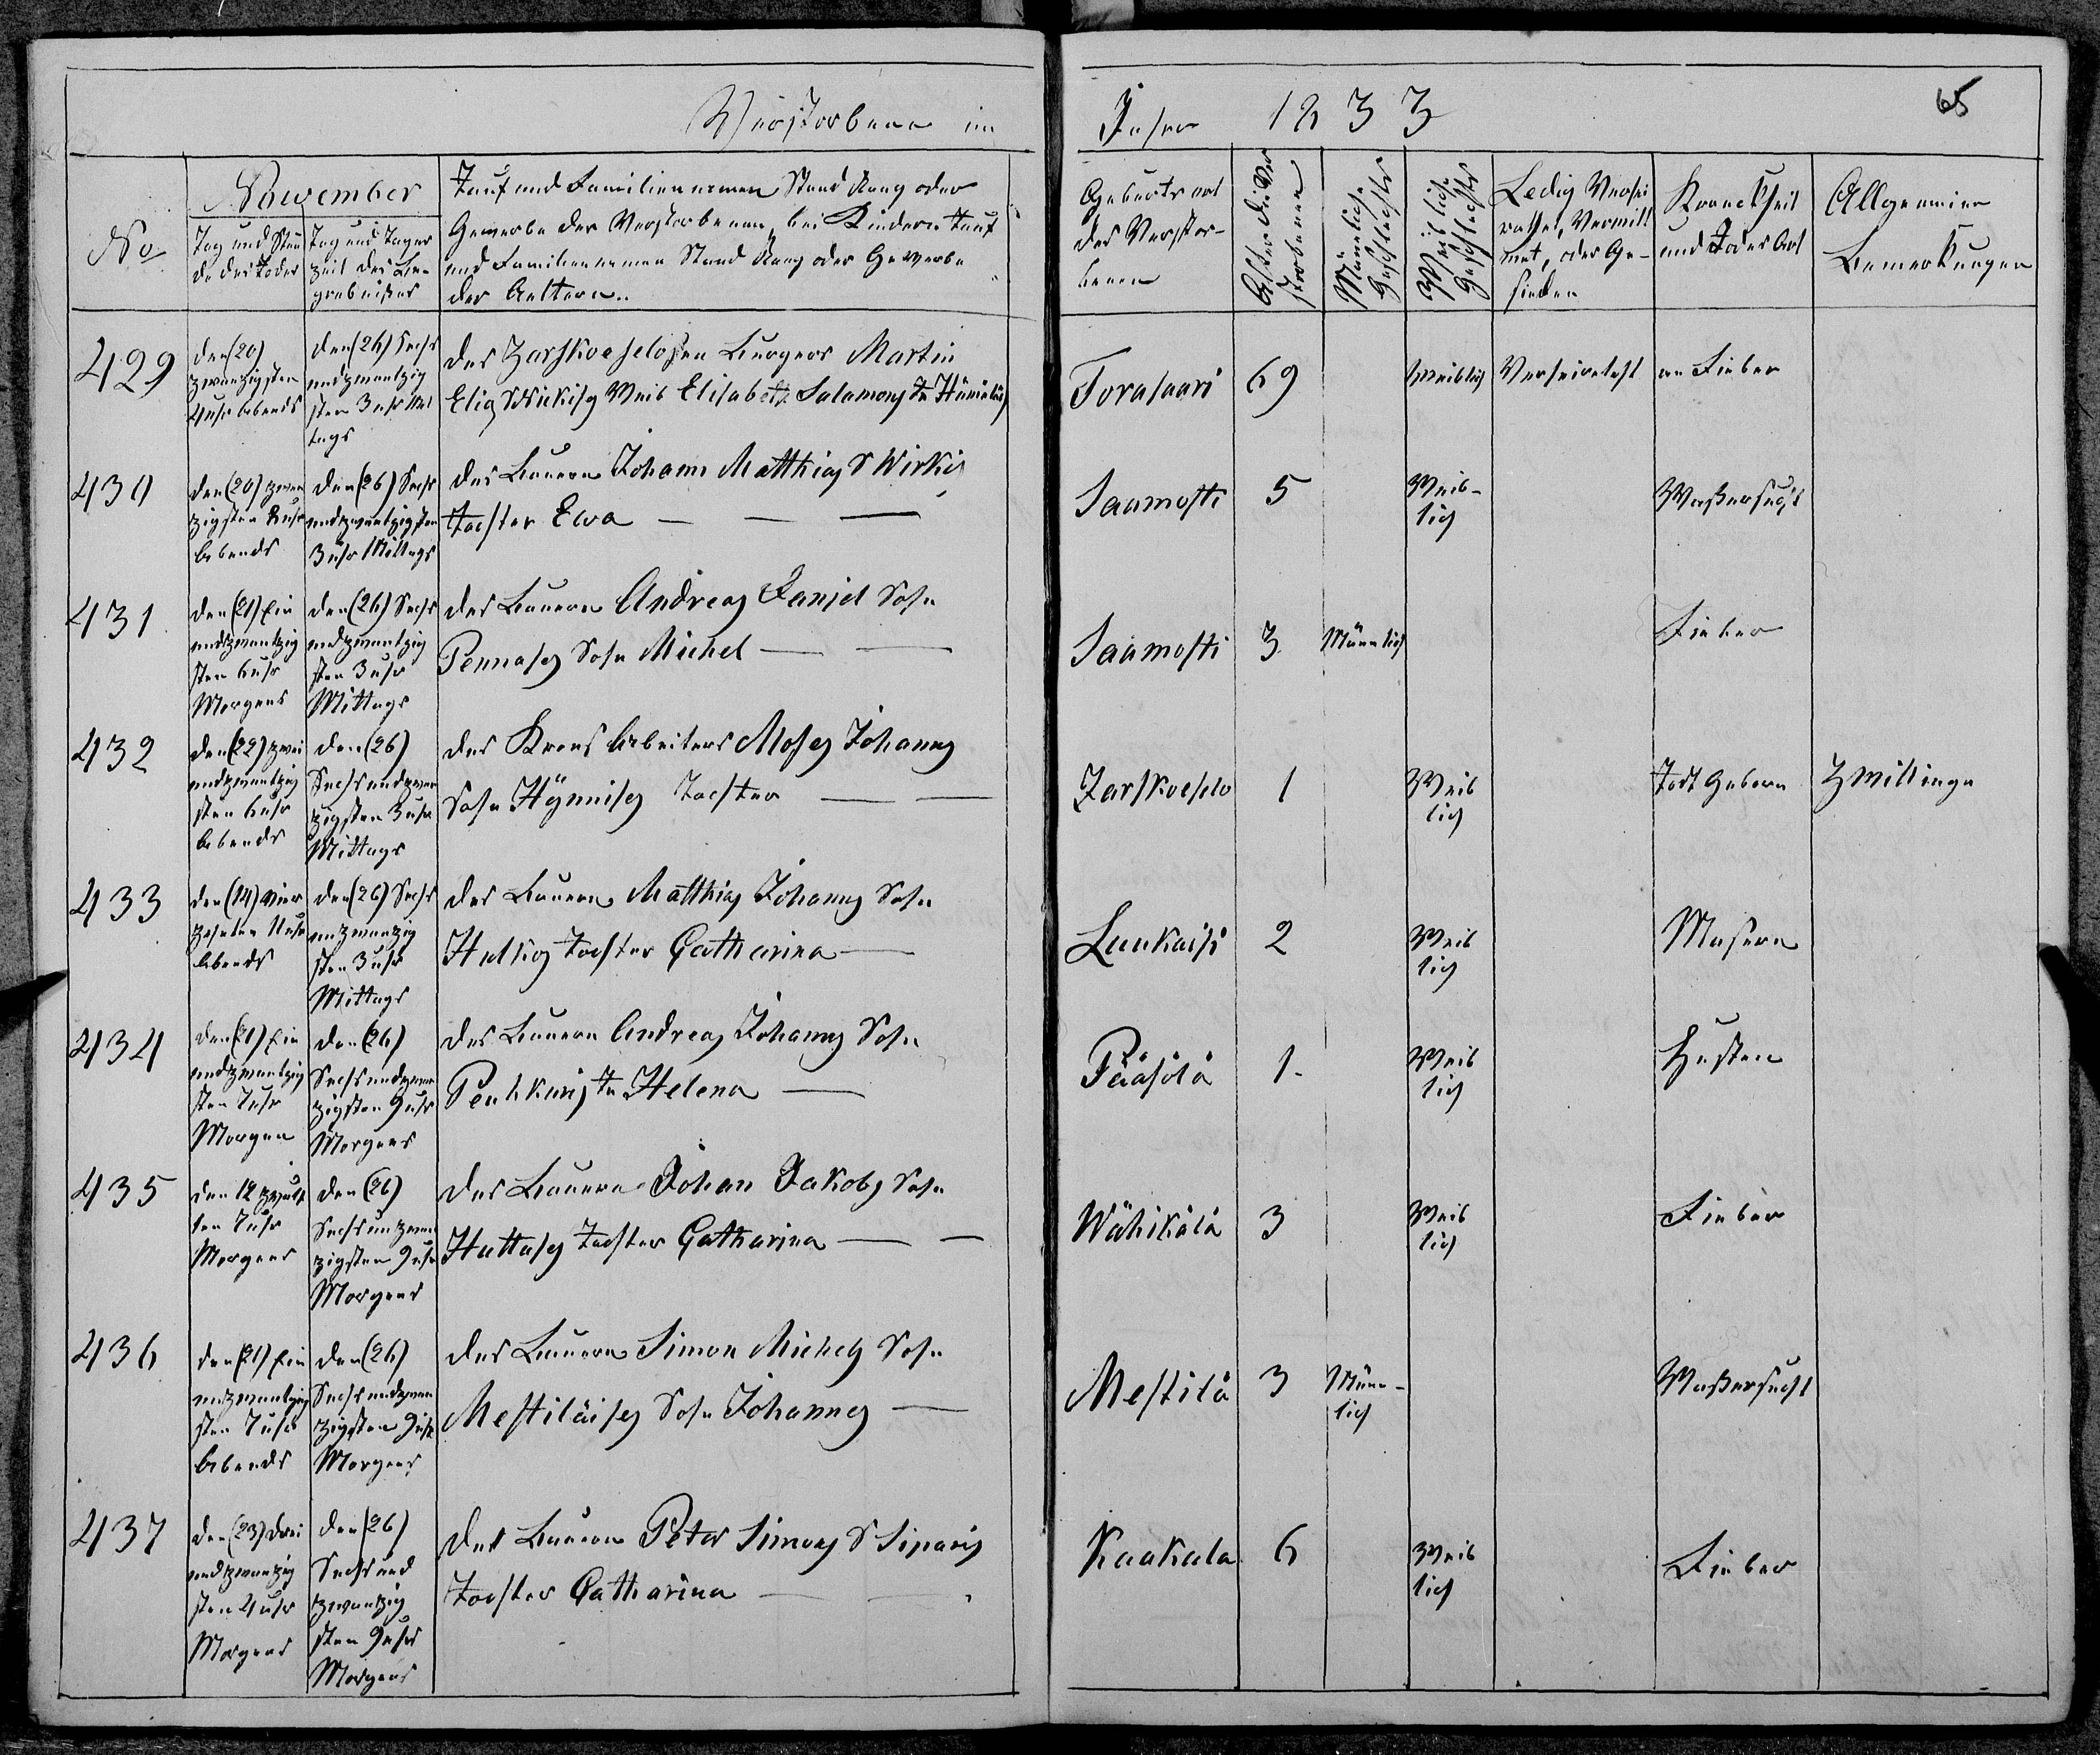 Verstorbene im
Jahre 1833
65
No
November
Tag und Stun
de des Todes
Tag und Tages
zeit des Be-
gräbnißes
Tauf und Familiennamen Stand Rang oder
Gewerbe der Verstorbenen, bei Kindern Tauf
und Familiennamen Stand Rang oder Gewerbe
der Aeltern..
Geburts ort
des Verstor-
benen
Alter des Ver
storbenen
Männlich.
Geschlechts
Weiblich.
Geschlechts
Ledig Verhei
rathet, Verwitt
wet, oder Ge-
schieden
Kranckheit
und Todes Art
Allgemeine
Bemerkungen
429
den (20)
zwanzigsten
4 uhr Abends
den (26) Sechs
undzwantzig
sten 3 uhr Mit
tags
des Zarskoeseloschen Burgers Martin
Weib Elisabeth Salamons Tr
Torasaari
69
Weiblich
Verheiratht
an Fieber
430
den (20) zwan
zigsten 8 uhr
Abends
den (26) Sechs
undzwantzigsten
3 uhr Mittags
des Bauern Johann Matthias S Wirkis
Tochter Ewa — — —
Saamosti
5
Weib-
lich
Waßersucht
431
den (21) Ein
undzwantzig
sten 6 uhr
Morgens
den (26) Sechs
undzwantzig
sten 3 uhr
Mittags
des Bauern Andreas Daniel Sohn
Pennases Sohn Michel — —
Saamosti
3
Männlich
Fieber
432
den (22) zwei
undzwantzig
sten 6 uhr
Abends
den (26)
Sechsundzwan
zigsten 3 uhr
Mittags
des Krons Arbeiters Moses Johanns
Sohn Hÿnnises Tochter — —
Zarskoeselo
1
Weib
lich
Todt Geboren
Zwillinge
433
den (14) vier
zehnten 11 uhr
Abends
den (26) Sechs
unzwanzig
sten 3 uhr
Mittags
des Bauern Matthias Johanns Sohn
Hulkos Tochter Catharina —
Luukaisi
2
Weib
lich
Masern
434
den (21) Ein
undzwantzig
sten 7 uhr
Morgen
den (26)
Sechsundzwan
zigsten 9 uhr
Morgens
des Bauern Andreas Johanns Sohn
Peuhkuris Tr Helena —
Pääsölä
1.
Weib
lich
Husten
435
den 12 zwölf
ten 7 uhr
Morgens
den (26)
Sechsunzwan
zigsten 9 uhr
Morgens
des Bauern Johan Jakobs Sohn
Huttases Tochter Catharina — —
Wähikälä
3
Weib
lich
Fieber
436
den (21) Ein
undzwantzig
sten 7 uhr
Abends
den (26)
Sechsundzwan
zigsten 9 uhr
Morgens
des Bauern Simon Michels Sohn
Mestiläises Sohn Johannes —
Mestilä
3
Männ-
lich
Waßersucht
437
den (23) drei
undzwanzig
sten 4 uhr
Morgens
den (26)
Sechsund
zwantzig
sten 9 uhr
Morgens
des Bauern Peter Simons S Siparis
Tochter Catharina — —
Kaakala
6
Weib
lich
Fieber